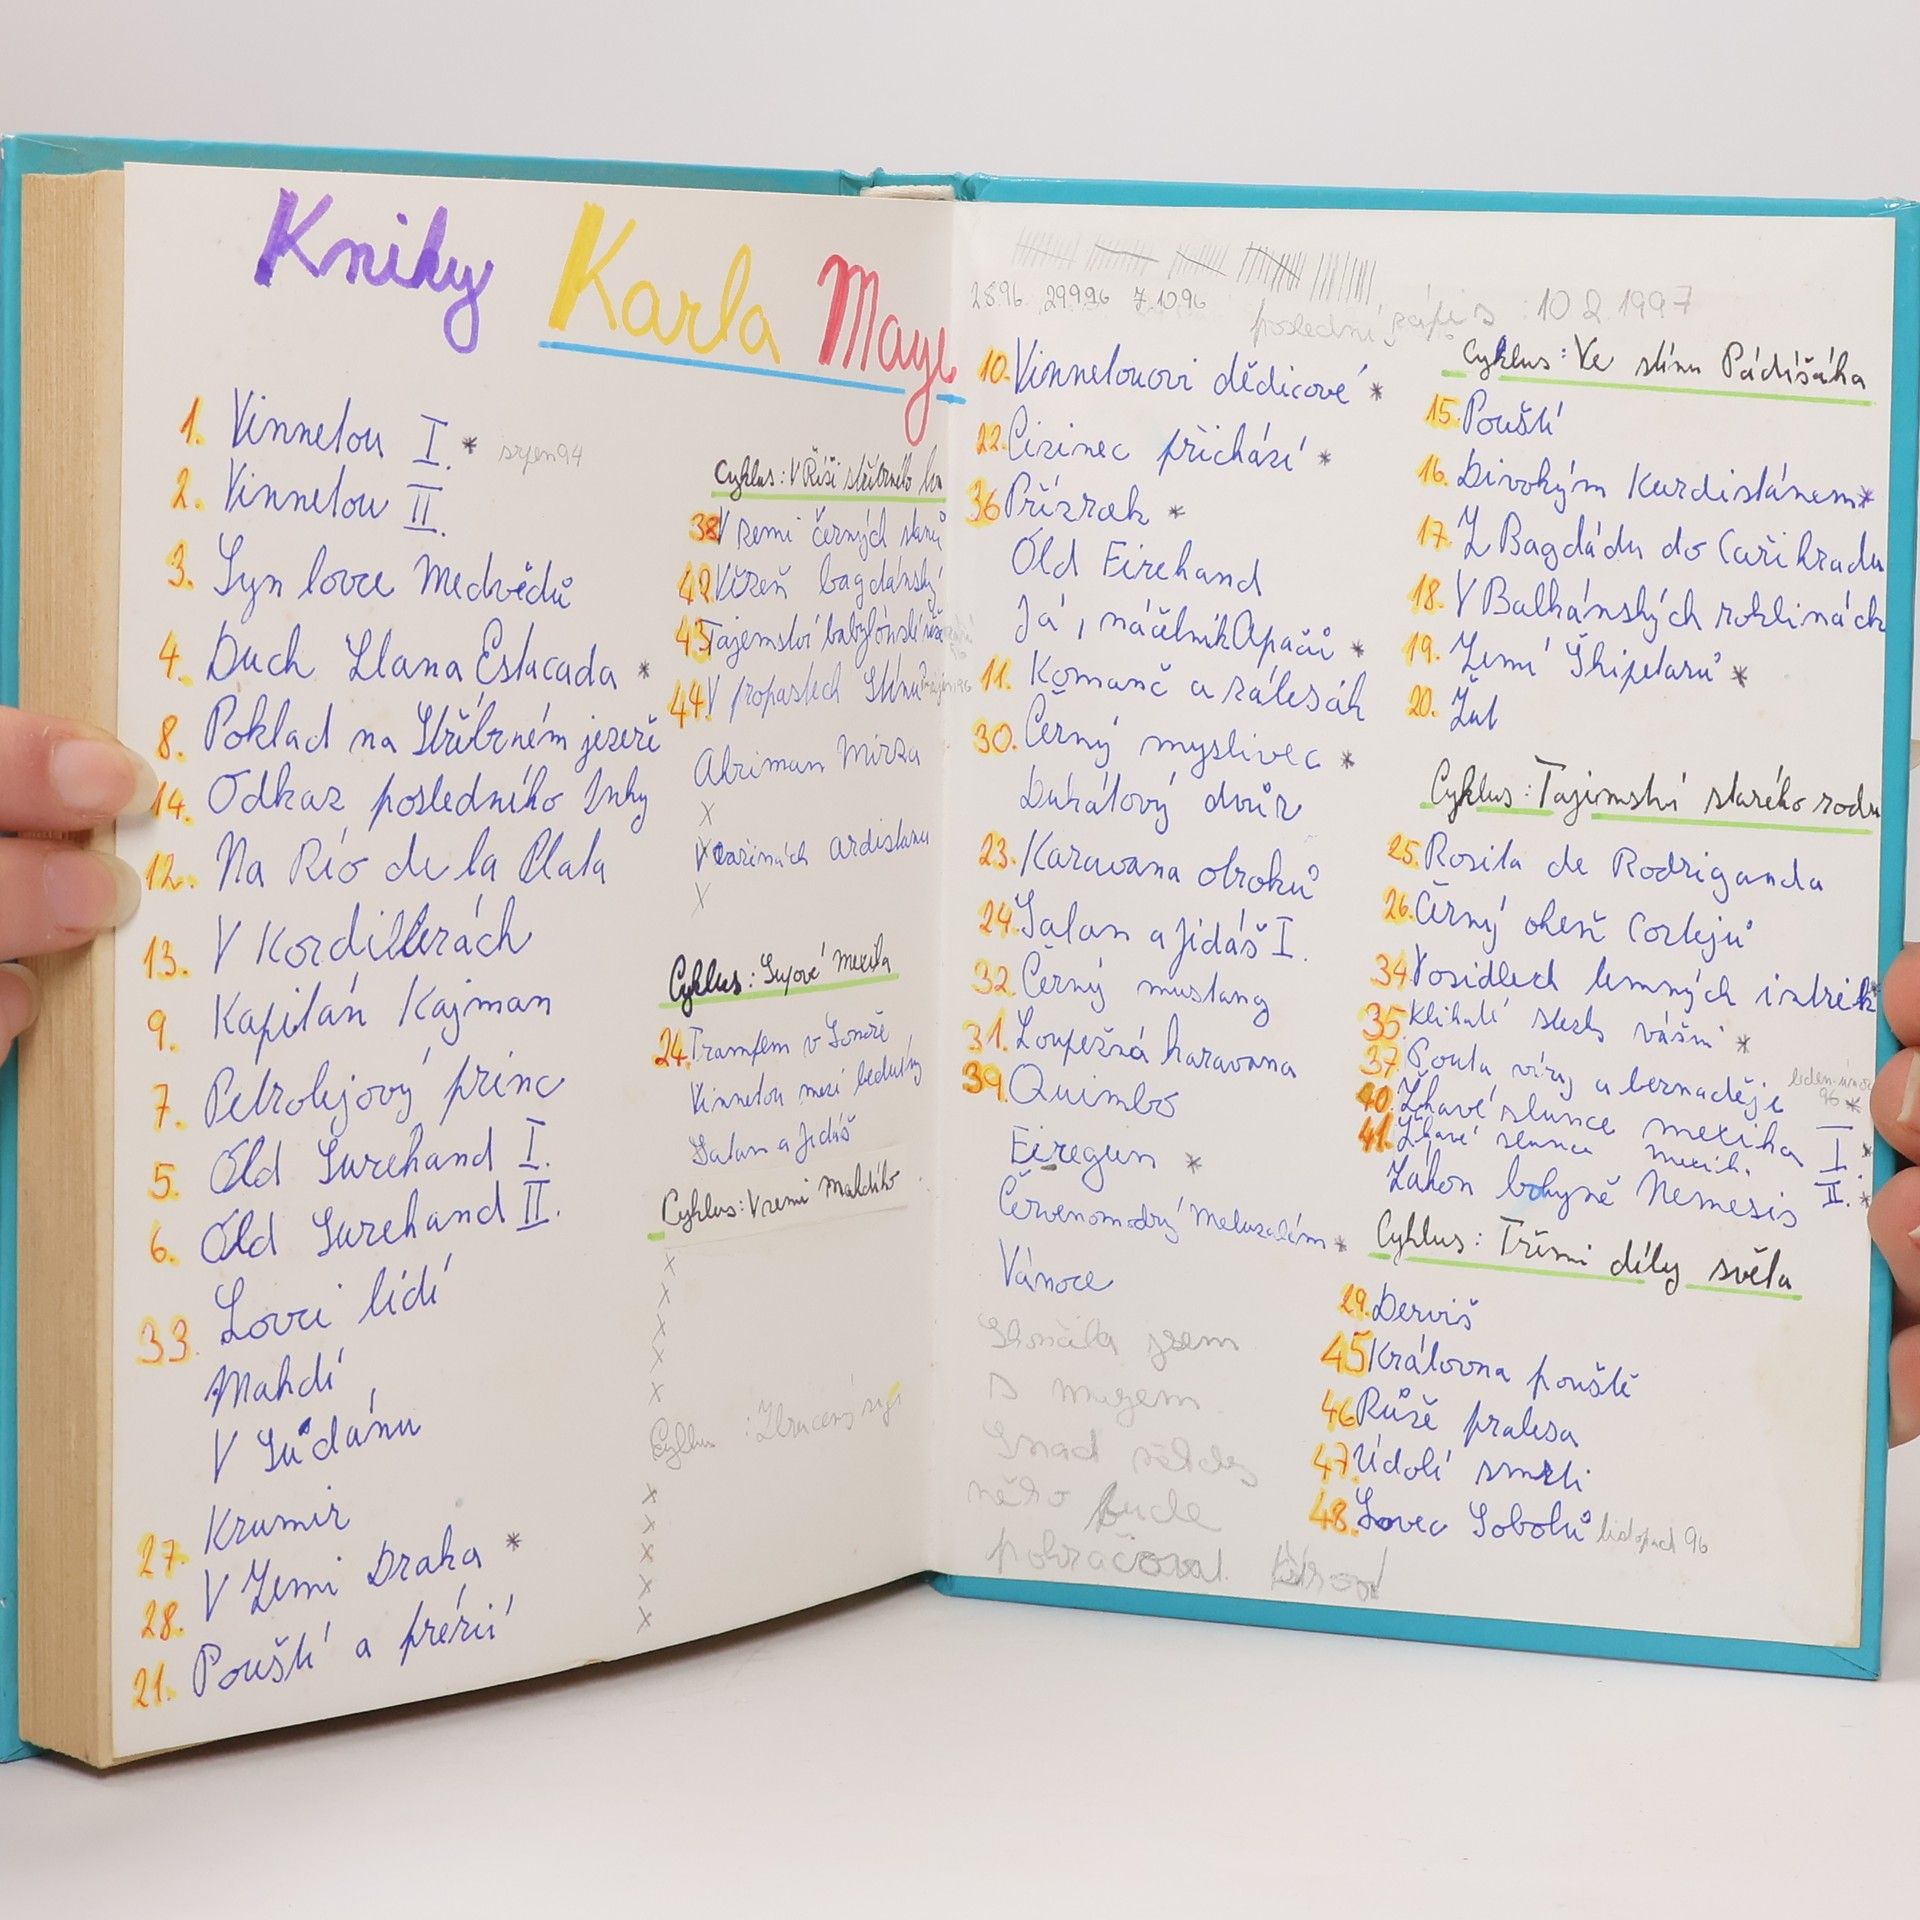 Knihy Karla Maye
1. Vinnetou I. * srpen 94
2. Vinnetou II.
3. Syn lovce Medvědů
4. Duch Llana Estacada *
8. Poklad na Stříbrném jezeře
14. Odkaz posledního Inky
12. Na Río de la Plata
13. V Kordillerách
9. Kapitán Kajman
7. Petrolejový princ
5. Old Surehand I.
6. Old Surehand II.
33. Lovci lidí
Mahdí
V Súdánu
27. Krumir
28. V Zemi Draka *
21. Pouští a prérií
Cyklus: V Říši stříbrného
38 V zemi černých stanů
42 Vězeň bagdádský
43 Tajemství babylónské
44 V propastech Stínu
Abriman Mirza
X
V ardistanu
X
Cyklus: Synové mexika
24. Trampem v Sonoře
Vinnetou mezi beduíny
Satan a Jidáš
Cyklus: V zemi Mahdího
X
X
X
X
X
Cyklus:
X
X
X
X
X
28.96 29.9.96 7.10.96
poslední zápis: 10 2. 1997
10. Vinnetouovi dědicové *
22. Cizinec přichází *
36 Přízrak *
Old Firehand
Já, náčelník Apačů *
11. Komanč a zálesák
30. Černý myslivec *
Dukátový dvůr
23. Karavana otroků
24. Satan a Jidáš I.
32. Černý mustang
31. Loupežná karavana
39. Quimbo
Firegun *
Červenomodrý Metuzalém *
Vánoce
Skončila jsem
s mayem
Snad někdy
někdo bude
pokračoval.
Cyklus: Ve stínu Pádišáha
15. Pouští
16. Divokým Kurdistánem *
17. Z Bagdádu do Cařihradu
18. V Balkánských roklinách
19. Zemí Škipetarů *
20. Žut
Cyklus: Tajemství starého rodu
25. Rosita de Rodriganda
26. Černý oheň Cortejů
34. V osidlech temných intrik *
35. Klikatí stezk vášní *
37. Pouta víry a beznaděje
40. Žhavé slunce mexika I. *
41. Žhavé slunce mexik. II. *
Zákon bohyně Nemesis
Cyklus: Třemi díly světa
29. Derviš
45 Královna pouště
46 Růže pralesa
47 Údolí smrti
48. Lovec Sobolů listopad 96